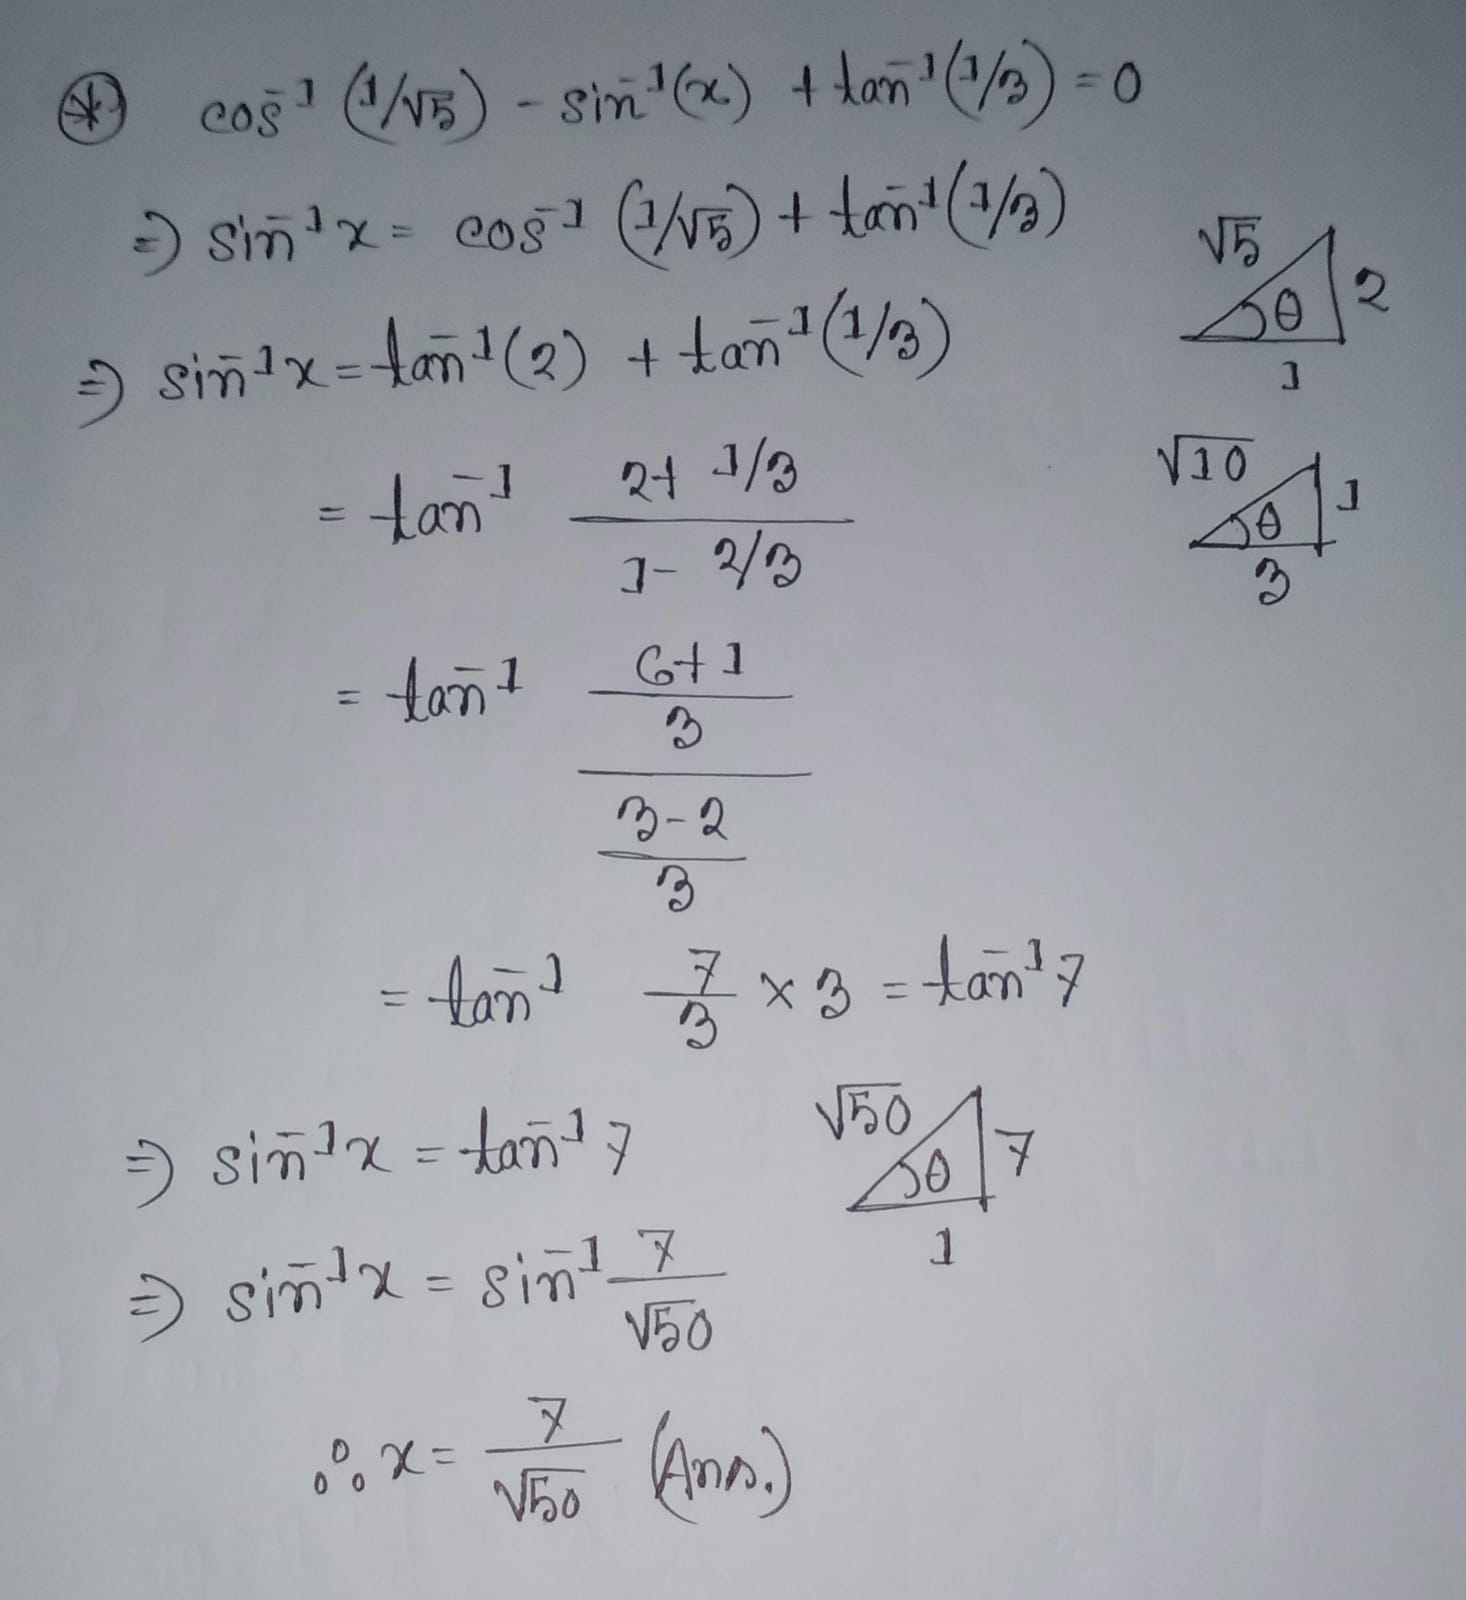 ⊛ cos⁻¹ (1/√5) - sin⁻¹(x) + tan⁻¹(1/3) = 0
⇒ sin⁻¹x = cos⁻¹ (1/√5) + tan⁻¹(1/3)
√5 θ 2
1
⇒ sin⁻¹x = tan⁻¹(2) + tan⁻¹(1/3)
= tan⁻¹ 2+ 1/3
1- 2/3
√10 θ 1
3
= tan⁻¹ 6+1
3
3-2
3
= tan⁻¹ 7/3 × 3 = tan⁻¹7
⇒ sin⁻¹x = tan⁻¹7
√50 θ 7
1
⇒ sin⁻¹x = sin⁻¹ 7/√50
∴ x = 7/√50 (Ans.)